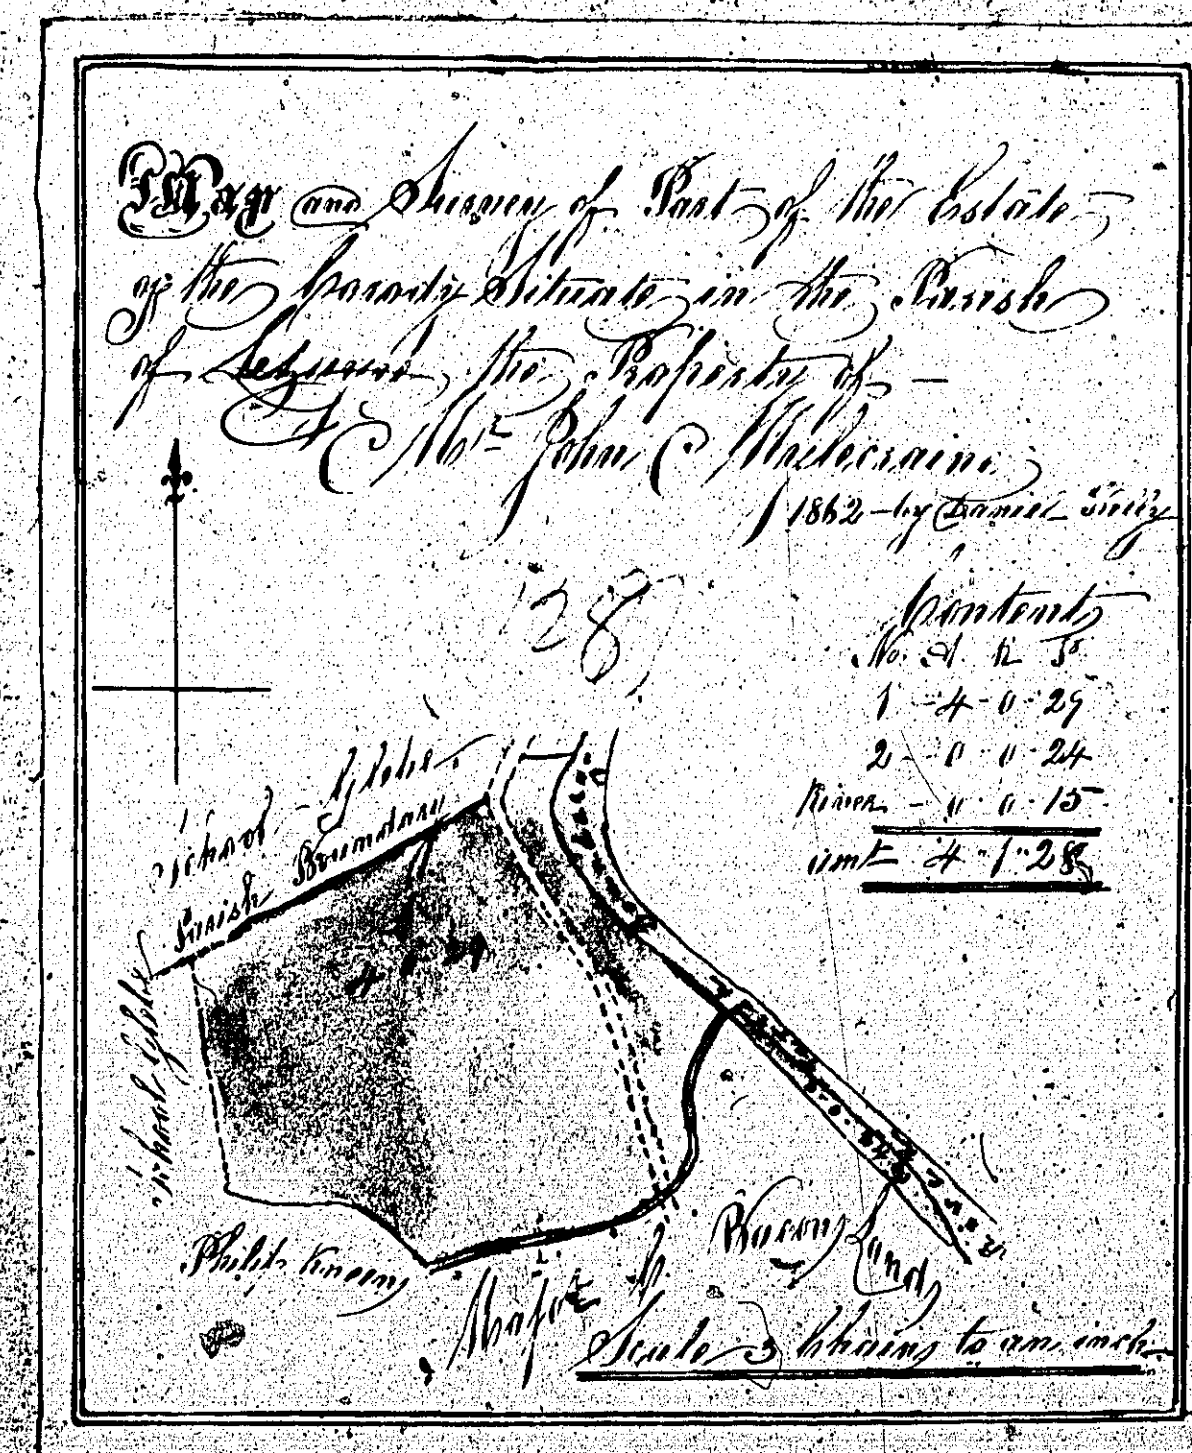 Map and Survey of Part of the Estate
of the Corrody Situate in the Parish
of Lezurre, the Property of
Mr John Mulcraine
1862 - by Daniel Tully
28
Contents
No. A. R Ps
1 - 4 - 0 - 29
2 - 0 - 0 - 24
River - 0 - 0 - 15
amt 4 - 1 - 28
School Glebe
Parish Boundary
School Glebe
4 0 29
Philip Kneen
Major
Bacons Land
Scale 3 Chains to an inch